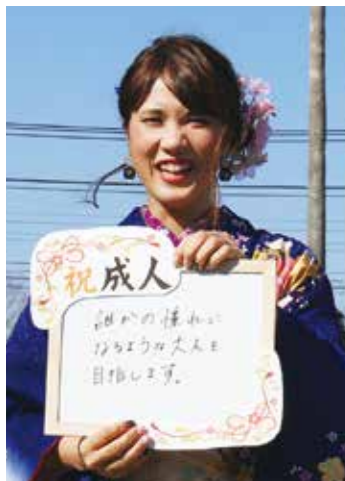 祝成人
誰かの憧れに
なるような大人を
目指します。